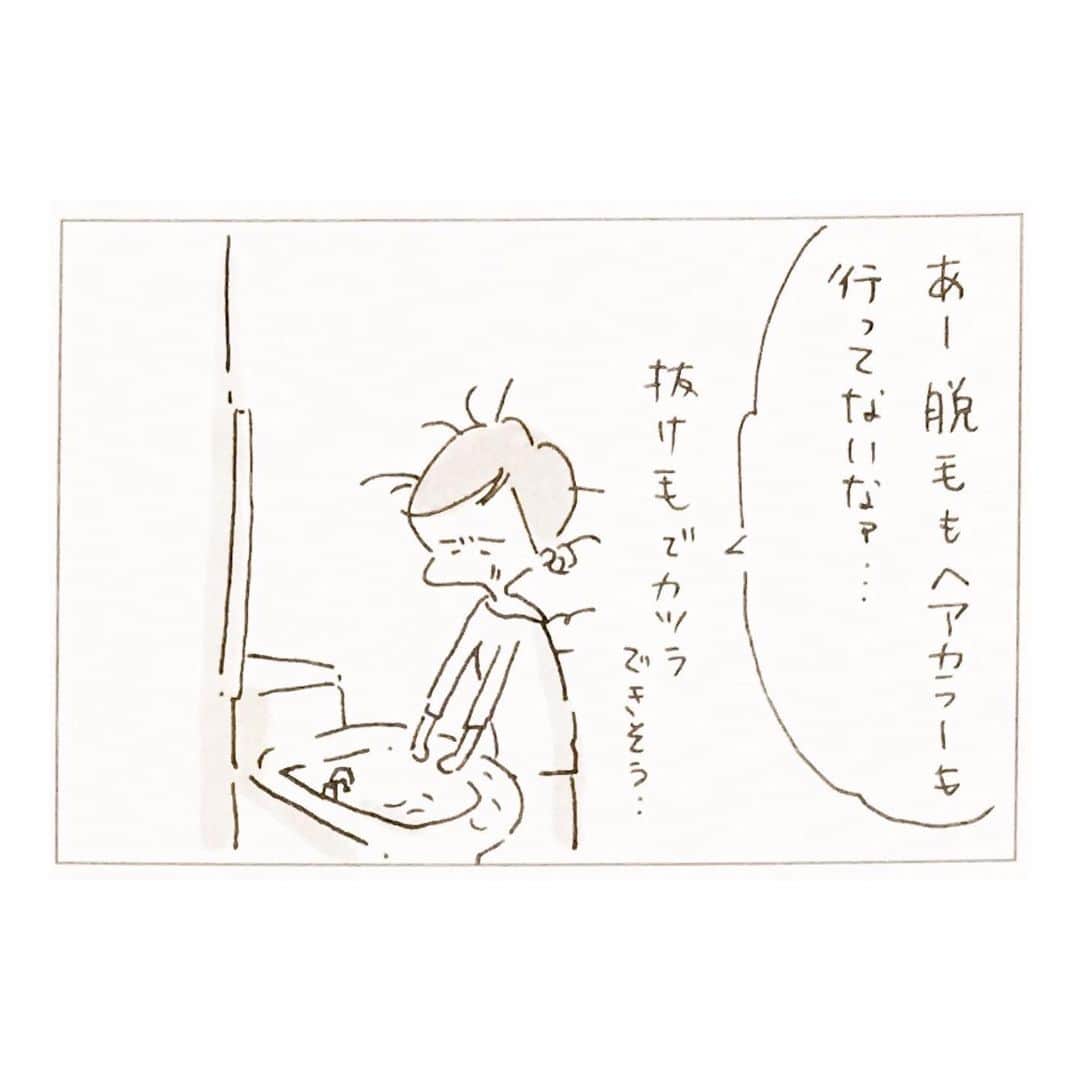 あー脱毛もヘアカラーも
行ってないなァ...
抜け毛でカツラ
できそう...